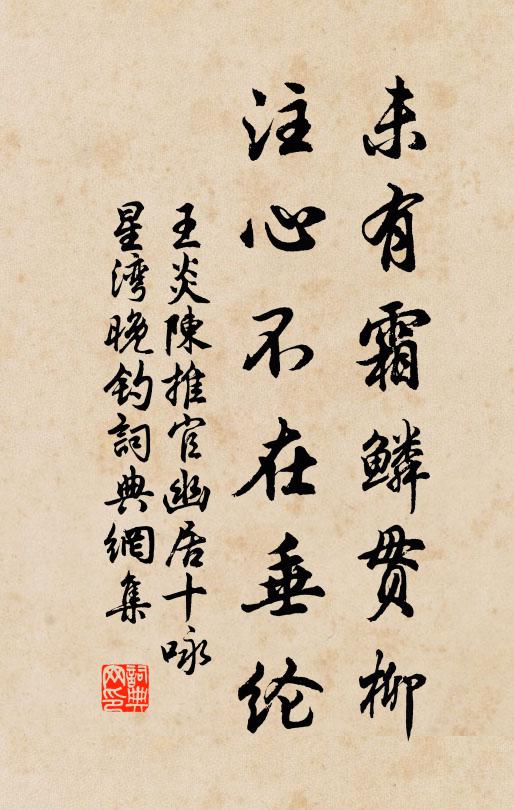 未有霜鳞贯柳
注心不在垂纶
王炎陳推官幽居十咏
星湾晚钓詞典網集
詞典网印